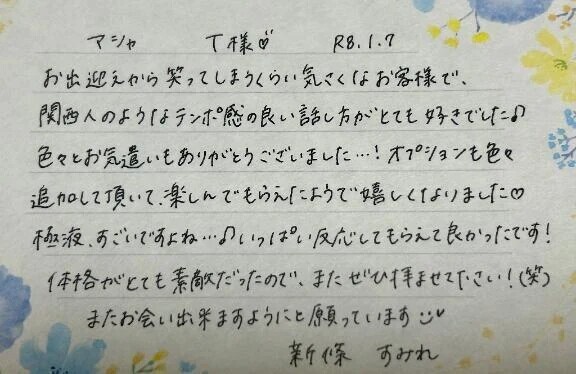 マシャ T様♡ R8.1.7
お出迎えから笑ってしまうくらい気さくなお客様で、
関西人のようなテンポ感の良い話し方がとても好きでした♪
色々とお気遣いもありがとうございました…!オプションも色々
追加して頂いて、楽しんでもらえたようで嬉しくなりました♡
極液、すごいですよね…♪いっぱい反応してもらえて良かったです!
体格がとても素敵だったので、またぜひ拝ませて下さい!(笑)
またお会い出来ますようにと願っています
新條 すみれ